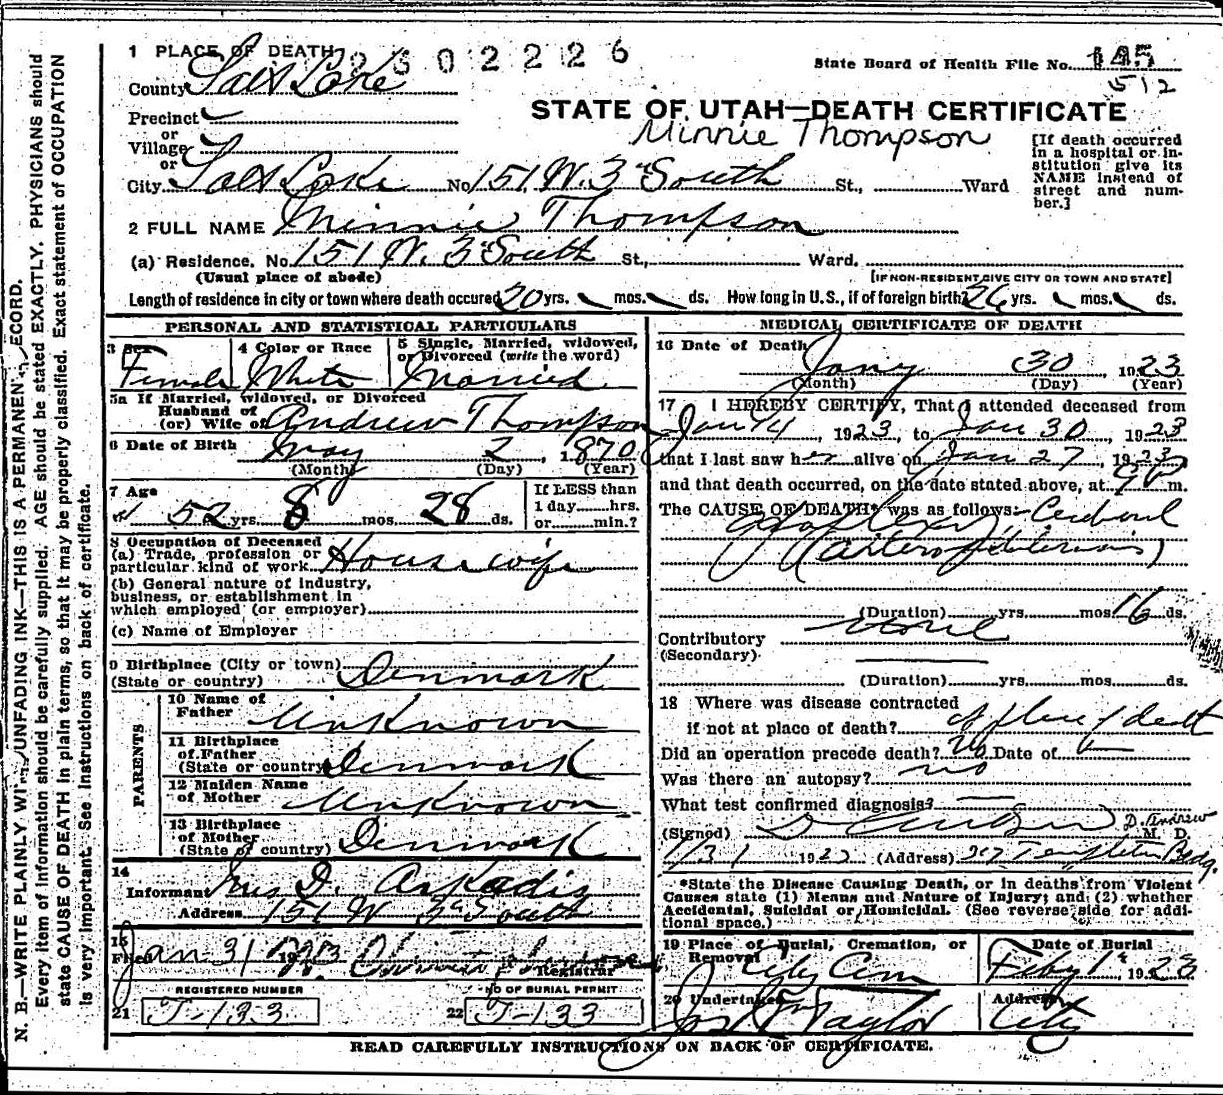 N. B.—WRITE PLAINLY WITH UNFADING INK—THIS IS A PERMANENT RECORD.
Every item of information should be carefully supplied. AGE should be stated EXACTLY. PHYSICIANS should
state CAUSE OF DEATH in plain terms, so that it may be properly classified. Exact statement of OCCUPATION
is very important. See instructions on back of certificate.
1 PLACE OF DEATH
2302226
State Board of Health File No. 145
512
County Salt Lake
STATE OF UTAH—DEATH CERTIFICATE
Minnie Thompson
Precinct
or
Village
or
City Salt Lake No 151 W. 3rd South St., Ward
[If death occurred
in a hospital or in-
stitution give its
NAME instead of
street and num-
ber.]
2 FULL NAME Minnie Thompson
(a) Residence. No. 151 W. 3rd South St., Ward.
(Usual place of abode)
[IF NON-RESIDENT GIVE CITY OR TOWN AND STATE]
Length of residence in city or town where death occured 20 yrs. mos. ds. How long in U.S., if of foreign birth? 26 yrs. mos. ds.
PERSONAL AND STATISTICAL PARTICULARS
3 Sex
Female
4 Color or Race
White
5 Single, Married, widowed,
or Divorced (write the word)
Married
5a If Married, widowed, or Divorced
Husband of
(or) Wife of Andrew Thompson
6 Date of Birth May 2, 1870
(Month) (Day) (Year)
7 Age
52 yrs. 8 mos. 28 ds.
If LESS than
1 day......hrs.
or......min.?
8 Occupation of Deceased
(a) Trade, profession or
particular kind of work Housewife
(b) General nature of industry,
business, or establishment in
which employed (or employer)
(c) Name of Employer
9 Birthplace (City or town)
(State or country) Denmark
PARENTS
10 Name of
Father Unknown
11 Birthplace
of Father
(State or country) Denmark
12 Maiden Name
of Mother Unknown
13 Birthplace
of Mother
(State or country) Denmark
14
Informant Mrs D. Arkadis
Address 151 W 3rd South
15
Filed Jan 31 1923
Registrar
REGISTERED NUMBER
21 T-133
NO OF BURIAL PERMIT
22 T-133
MEDICAL CERTIFICATE OF DEATH
16 Date of Death Jany 30 1923
(Month) (Day) (Year)
17 I HEREBY CERTIFY, That I attended deceased from
Jan 14, 1923, to Jan 30, 1923
that I last saw her alive on Jan 27, 1923
and that death occurred, on the date stated above, at 9 P m.
The CAUSE OF DEATH* was as follows: Cerebral
Apoplexy
(Duration) yrs. mos. 16 ds.
Contributory None
(Secondary)
(Duration) yrs. mos. ds.
18 Where was disease contracted
if not at place of death? at place of death
Did an operation precede death? No Date of
Was there an autopsy? no
What test confirmed diagnosis?
(Signed) M. D.
1/31 192 (Address) Templeton Bldg.
*State the Disease Causing Death, or in deaths from Violent
Causes state (1) Means and Nature of Injury; and (2) whether
Accidental, Suicidal or Homicidal. (See reverse side for addi-
tional space.)
19 Place of Burial, Cremation, or
Removal City Cem
Date of Burial
Feby 1st 1923
20 Undertaker
Jos Wm Taylor
Address
City
READ CAREFULLY INSTRUCTIONS ON BACK OF CERTIFICATE.